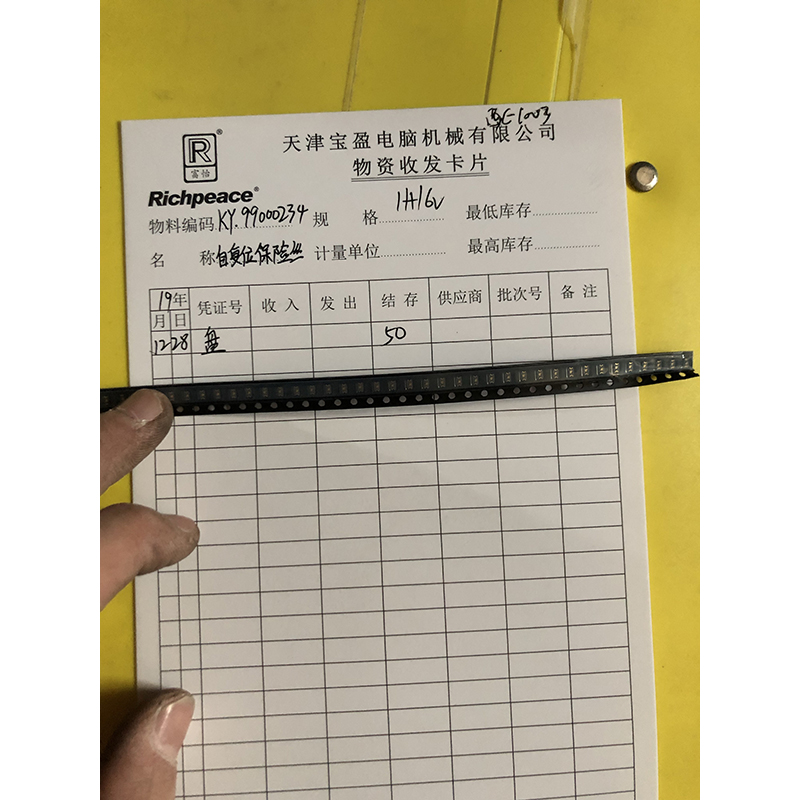 R®
富怡
Richpeace®
天津宝盈电脑机械有限公司
物资收发卡片
物料编码 KY.99000234 规 格 1H16v 最低库存
名 称 自复位保险丝 计量单位 最高库存
19年 凭证号 收入 发出 结存 供应商 批次号 备注
月 日
12 28 盘 50